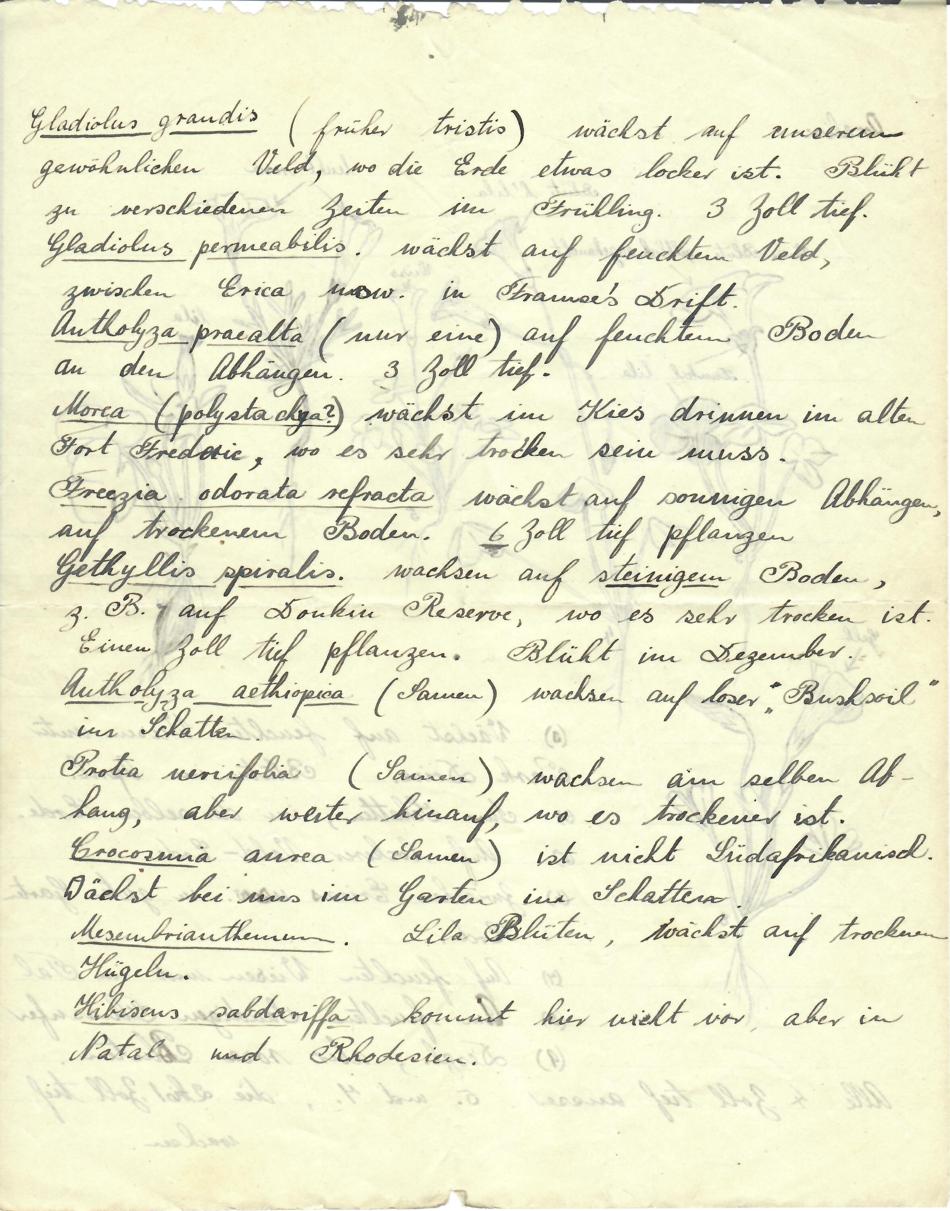 Gladiolus grandis (früher tristis) wächst auf unserem
gewöhnlichen Veld, wo die Erde etwas locker ist. Blüht
zu verschiedenen Zeiten im Frühling. 3 Zoll tief.
Gladiolus permeabilis. wächst auf feuchtem Veld,
zwischen Erica usw. in Framse's Drift.
Antholyza praealta (nur eine) auf feuchtem Boden
an den Abhängen. 3 Zoll tief.
Morea (polystachya?) wächst im Kies drinnen im alten
Fort Frederic, wo es sehr trocken sein muss.
Freezia odorata refracta wächst auf sonnigen Abhängen,
auf trockenem Boden. 6 Zoll tief pflanzen
Gethyllis spiralis. wachsen auf steinigem Boden,
z. B. auf Donkin Reserve, wo es sehr trocken ist.
Einen Zoll tief pflanzen. Blüht im Dezember.
Antholyza aethiopica (Samen) wachsen auf loser "Bushsoil"
im Schatten.
Protea neriifolia (Samen) wachsen am selben Ab-
hang, aber weiter hinauf, wo es trockener ist.
Crocosmia aurea (Samen) ist nicht Südafrikanisch.
Wächst bei uns im Garten im Schatten.
Mesembrianthemum. Lila Blüten, wächst auf trockenen
Hügeln.
Hibiscus sabdariffa kommt hier nicht vor, aber in
Natal und Rhodesien.